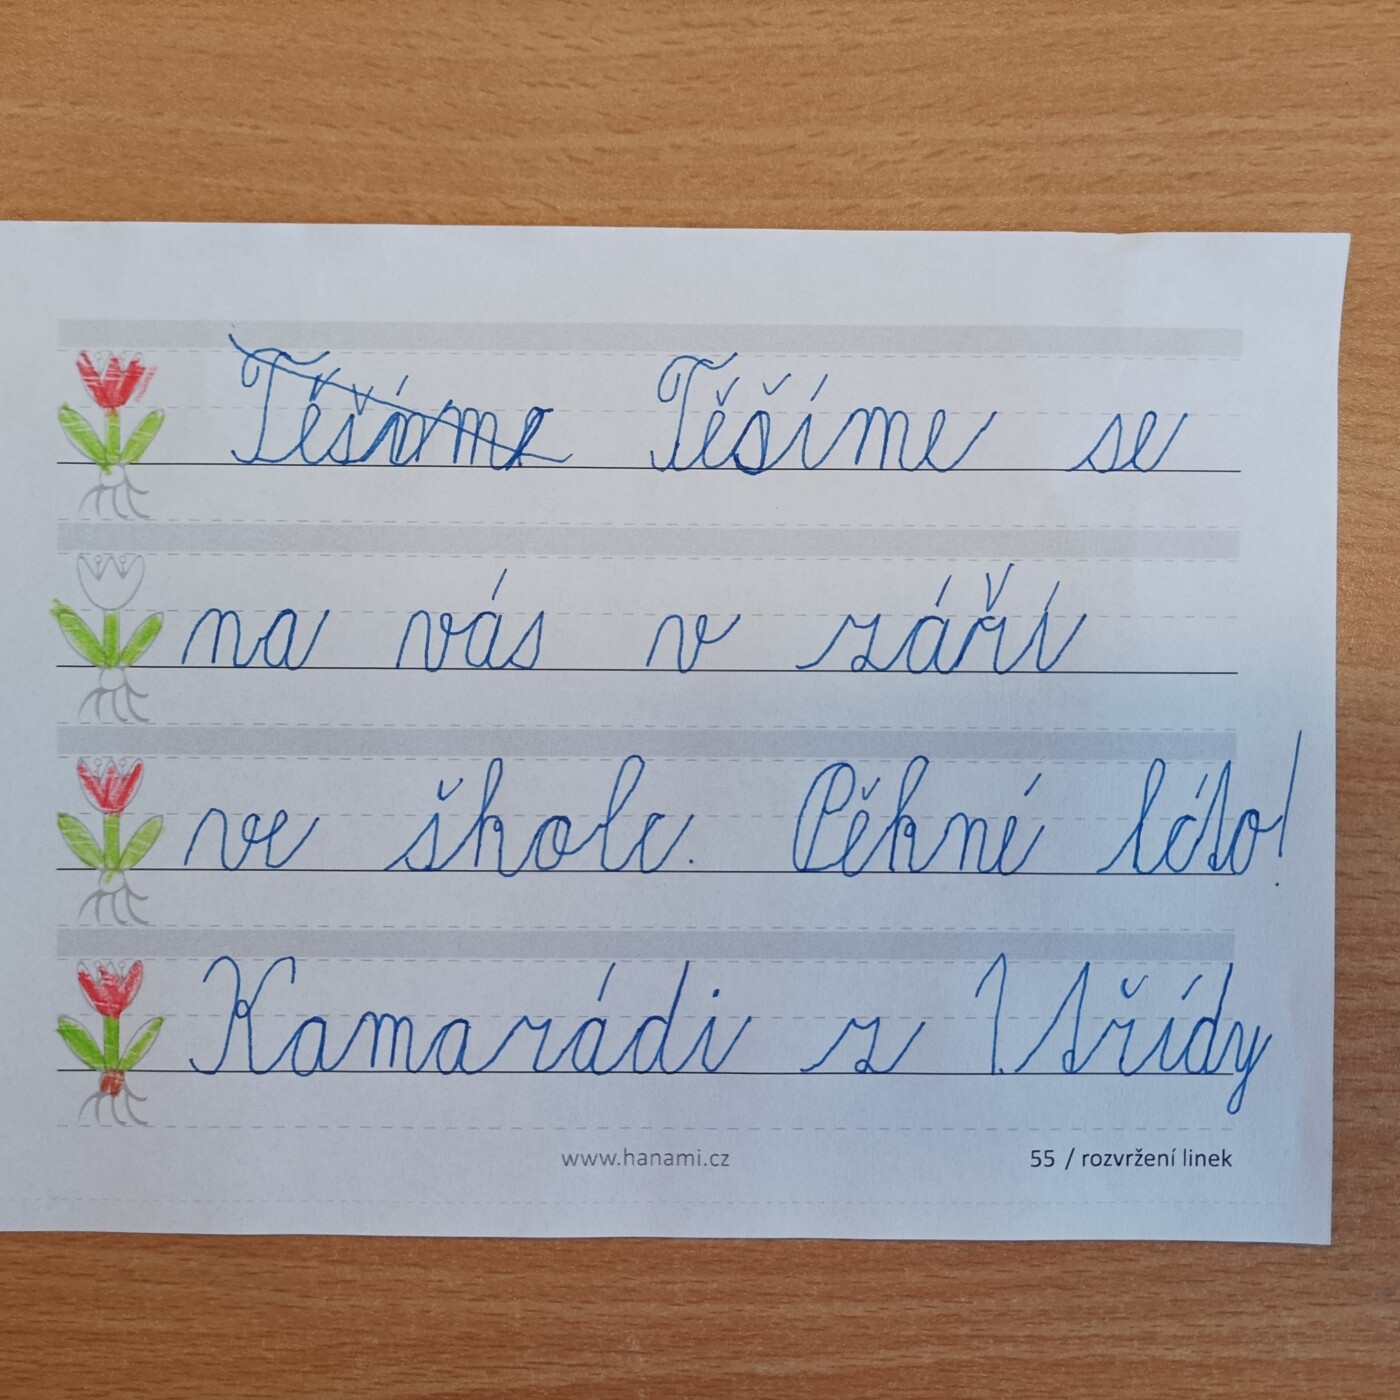 Těšíme Těšíme se
na vás v září
ve škole. Pěkné léto!
Kamarádi z 1. třídy
www.hanami.cz 55 / rozvržení linek